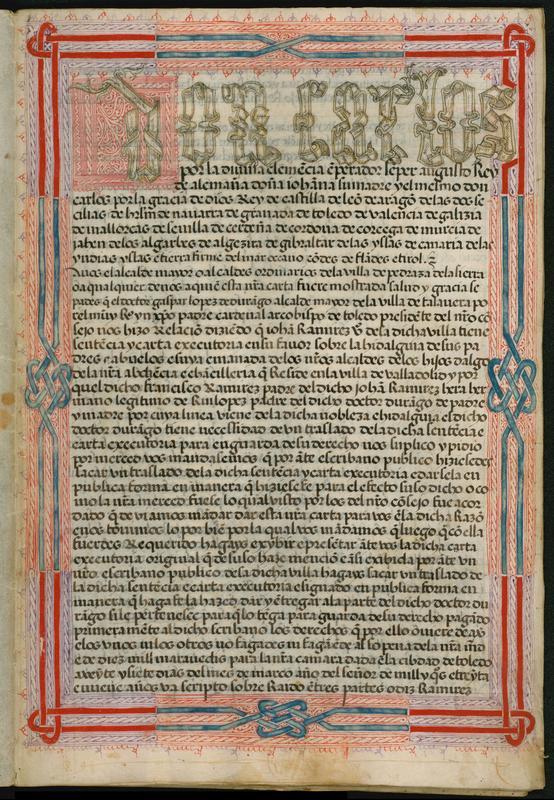 Don carlos
por la diuina clemẽcia ẽperador seper augusto Rey
de alemaña doña iohãna su madre y el mesmo don
carlos por la gracia de dios Rey de castilla de leõ de aragõ de las dos se
cilias de hrlm̃ de nauarra de granada de toledo de valẽcia de galizia
de mallorcas de seuilla de cerdeña de cordoua de corcega de murcia de
jahen de los algarbes de algezira de gibraltar de las yslas de canaria de las
yndias yslas e tierra firme del mar oceano cõdes de flãdes e tirol.
A uos el alcalde mayor o alcaldes ordinarios de la villa de pedraza de la sierra
o a qualquier de uos a quiẽ esta nr̃a carta fuere mostrada salud y gracia se
pades q̃ el doctor gaspar lopez de durãgo alcalde mayor de la villa de talauera po
rel muy Rẽ yn xp̃o padre cardenal arcobispo de toledo presidẽte del nr̃o cõ
sejo nos hizo Relaciõ diziẽdo q̃ iohã Ramirez vº de la dicha villa tiene
sentẽcia y carta executoria en su fauor sobre la hidalguia de sus pa
dres e abuelos e suya emanada de los nr̃os alcaldes de los hijos dalgo
de la nr̃a abdiẽcia e chãcilleria q̃ Reside en la villa de valladolid y por
quel dicho francisco Ramirez padre del dicho johã Ramirez hera her
mano legitimo de Ruy lopez padre del dicho doctor durãgo de padre
y madre por cuya linea viene de la dicha nobleza e hidalguia el dicho
doctor durãgo tiene necessidad de vn traslado de la dicha sentẽcia e
carta executoria para en guarda de su derecho nos suplico y pidio
por merced vos mandasemos q̃ por ãte escribano publico hiziesedes
sacar vn traslado de la dicha sentẽcia y carta executoria e darsela en
publica forma en manera q̃ hiziese fe para el efecto suso dicho o co
mo la nr̃a merced fuese lo qual visto por los del nr̃o cõsejo fue acor
dado q̃ deuiamos mãdar dar esta nr̃a carta para vos ẽ la dicha Razõ
e nos touimos lo por biẽ por la qual vos mãdamos q̃ luego q̃ cõ ella
fuerdes Requerido hagays exybir e presẽtar ãte vos la dicha carta
executoria original q̃ de suso haze menciõ e asi exibida por ãte vn
nr̃o escribano publico desa dicha villa hagays sacar vn traslado de
la dicha sentẽcia e carta executoria e signado en publica forma en
manera q̃ haga fe la hazed dar y ẽtregar a la parte del dicho doctor du
rãgo si le pertenesce para q̃ lo tẽga para guarda de su derecho pagãdo
primeramẽte al dicho scribano los derechos q̃ por ello ouiere de aỹ
e los vnos ni los otros no fagades ni fagã ẽde al so pena de la nr̃a md̃
e de diez mill marauedis para la nr̃a camara dada ẽ la cibdad de toledo
a veyte y siete dias del mes de marco año del señor de mill y qºs e treyta
e nueue años va scripto sobre Raido ẽtres partes o diz Ramirez